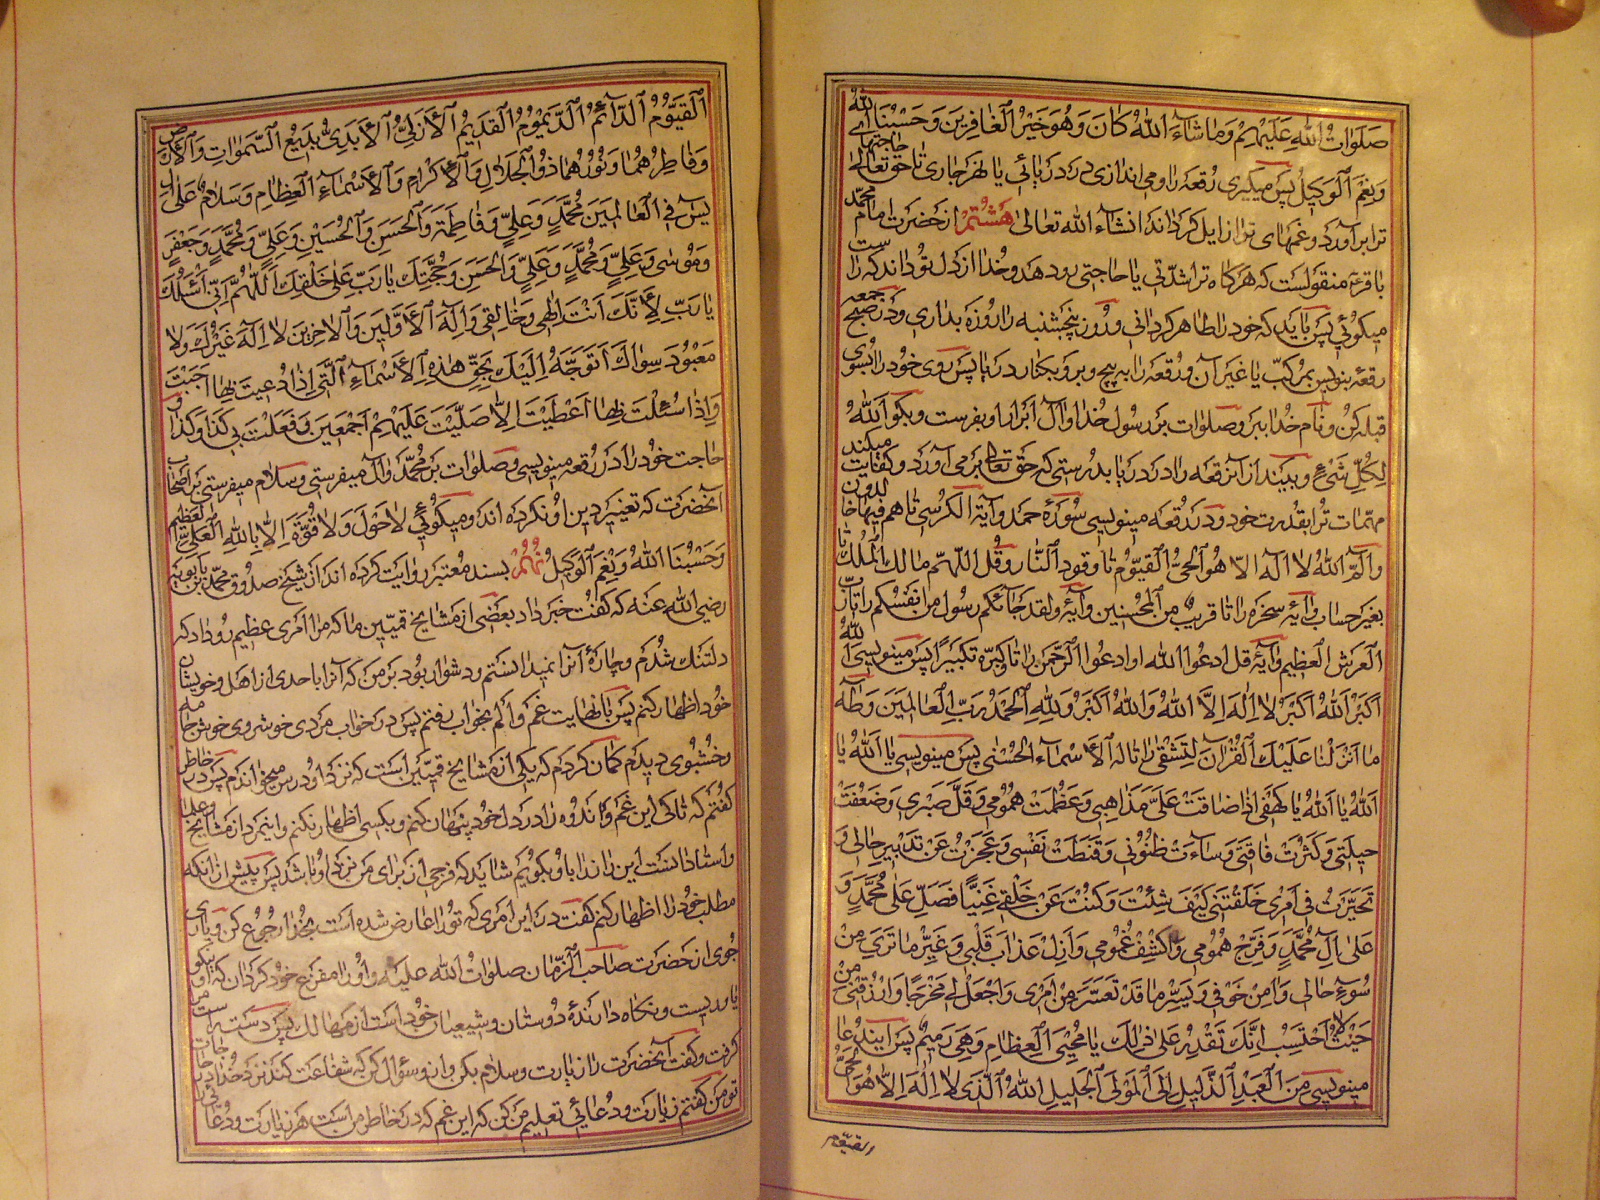 صَلَوٰاتُ اللّٰهِ عَلَيْهِمْ وَمٰا شٰآءَ اللّٰهُ كٰانَ وَهُوَ خَيْرُ ٱلْغٰافِرِينَ وَحَسْبُنَا اللّٰهُ
وَنِعْمَ ٱلْوَكِيلُ پس میگیری رقعه را و می اندازی در دریائی یا نهر جاری تا حق تعالی
ترا برآورد و غمهای ترا زایل گرداند انشآء الله تعالی هشتم از حضرت امام محمد
باقر ع منقولست که هرگاه ترا شدّتی یا حاجتی رو دهد و خدا از دل تو داند که راست
میگوئی پس باید که خود را طاهر گردانی و روز پنجشنبه را روزه بداری و در صبح جمعه
رقعه بنویس بمرکّب یا غیر آن و رقعه را به پیچ و برو بکنار دریا پس روی خود را بسوی
قبله کن و نام خدا ببر و صلوات بر رسول خدا و آل ابرار او بفرست و بگو اَللّٰهُ
لِكُلِّ شَيْءٍ و بینداز آنرقعه را در دریا بدرستی که حق تعالی بر می آورد و کفایت میکند
مهمّات ترا بقدرت خود و در رقعه مینویسی سورهٔ حمد و آیة الکرسی تا هم فیها خالدون
و الٓمٓ الله لا اله الا هو ٱلحیّ ٱلقیّوم تا وقود ٱلنّار و قل اللّهمّ مالك ٱلملك تا
بغیر حساب و آیه سخره را تا قریب من ٱلمحسنین و آیه و لقد جآئکم رسول من انفسکم را تا ربّ
ٱلعرش ٱلعظیم و آیه قل ادعوا الله او ادعوا ٱلرّحمن را تا و کبّره تکبیرًا پس مینویسی اَللّٰهُ
اَكْبَرُ اَللّٰهُ اَكْبَرُ لاٰ اِلٰهَ اِلاَّ اللّٰهُ وَاللّٰهُ اَكْبَرُ وَلِلّٰهِ ٱلْحَمْدُ رَبِّ ٱلْعٰالَمِينَ وَطٰهٰ
مٰا اَنْزَلْنٰا عَلَيْكَ ٱلْقُرْآنَ لِتَشْقىٰ را تا له ٱلْاَسْمٰآءُ ٱلْحُسْنىٰ پس مینویسی یٰا اَللّٰهُ یٰا
اَللّٰهُ یٰا اَللّٰهُ یٰا كَهْفِي اِذٰا ضٰاقَتْ عَلَىَّ مَذٰاهِبِي وَعَظُمَتْ هُمُومِي وَقَلَّ صَبْرِي وَضَعُفَتْ
حِيلَتِي وَكَثُرَتْ فٰاقَتِي وَسٰآءَتْ ظُنُونِي وَقَنَطَتْ نَفْسِي وَعَجَزْتُ عَنْ تَدْبِيرِ حٰالِي وَ
تَحَيَّرْتُ فِي اَمْرِي خَلَقْتَنِي كَيْفَ شِئْتَ وَكُنْتَ عَنْ خَلْقِي غَنِيًّا فَصَلِّ عَلىٰ مُحَمَّدٍ وَ
عَلىٰ آلِ مُحَمَّدٍ وَفَرِّجْ هُمُومِي وَٱكْشِفْ غُمُومِي وَاَزِلْ عَذٰابَ قَلْبِي وَغَيِّرْ مٰا تَرىٰ مِنْ
سُوءِ حٰالِي وَآمِنْ خَوْفِي وَيَسِّرْ مٰا قَدْ تَعَسَّرَ مِنْ اَمْرِي وَٱجْعَلْ لِي مَخْرَجًا وَٱرْزُقْنِي مِنْ
حَيْثُ لاٰ اَحْتَسِبُ اِنَّكَ تَقْدِرُ عَلىٰ ذٰلِكَ يٰا مُحْيِيَ ٱلْعِظٰامِ وَهِيَ رَمِيمٌ پس ایندعا
مینویسی مِنَ ٱلْعَبْدِ ٱلذَّلِيلِ اِلَى ٱلْمَوْلَى ٱلْجَلِيلِ اَللّٰهُ ٱلَّذِي لاٰ اِلٰهَ اِلاّٰ هُوَ ٱلْحَىُّ
القیّوم
ٱلْقَيُّومُ ٱلدّٰآئِمُ ٱلدَّيْمُومُ ٱلْقَدِيمُ ٱلْاَزَلِيُّ ٱلْاَبَدِيُّ بَدِيعُ ٱلسَّمٰوٰاتِ وَٱلْاَرْضِ
وَفٰاطِرُهُمٰا وَنُورُهُمٰا ذُو ٱلْجَلاٰلِ وَٱلْاِكْرٰامِ وَٱلْاَسْمٰآءِ ٱلْعِظٰامِ وَسَلاٰمٌ عَلىٰ آلِ
يٰسٓ فِي ٱلْعٰالَمِينَ مُحَمَّدٍ وَعَلِيٍّ وَفٰاطِمَةَ وَٱلْحَسَنِ وَٱلْحُسَيْنِ وَعَلِيٍّ وَمُحَمَّدٍ وَجَعْفَرٍ
وَمُوسىٰ وَعَلِيٍّ وَمُحَمَّدٍ وَعَلِيٍّ وَٱلْحَسَنِ وَحُجَّتِكَ يٰا رَبِّ عَلىٰ خَلْقِكَ اَللّٰهُمَّ اِنِّي اَسْئَلُكَ
يٰا رَبِّ لِاَنَّكَ اَنْتَ اِلٰهِي وَخٰالِقِي وَاِلٰهُ ٱلْاَوَّلِينَ وَٱلْآخِرِينَ لاٰ اِلٰهَ غَيْرُكَ وَلاٰ
مَعْبُودَ سِوٰاكَ اَتَوَجَّهُ اِلَيْكَ بِحَقِّ هٰذِهِ ٱلْاَسْمٰآءِ ٱلَّتِي اِذٰا دُعِيتَ بِهٰا اَجَبْتَ
وَاِذٰا سُئِلْتَ بِهٰا اَعْطَيْتَ اِلاّٰ صَلَّيْتَ عَلَيْهِمْ اَجْمَعِينَ وَفَعَلْتَ بِي كَذٰا وَكَذٰا و
حاجت خود را در رقعه مینویسی و صلوات بر محمّد و آل میفرستی و سلام میفرستی بر اصحاب
آنحضرت که تغییر دین او نکرده اند و میگوئی لاٰ حَوْلَ وَلاٰ قُوَّةَ اِلاّٰ بِاللّٰهِ ٱلْعَلِيِّ ٱلْعَظِيمِ
وَحَسْبُنَا اللّٰهُ وَنِعْمَ ٱلْوَكِيلُ نهم بسند معتبر روایت کرده اند از شیخ صدوق محمّد بن بابویه
رضی الله عنه که گفت خبر داد بعضی از مشایخ قمیّین ما که مرا امری عظیم رو داد که
دلتنك شدم و چارهٔ آنرا نمیدانستم و دشوار بود بر من که آنرا باحدی از اهل و خویشان
خود اظهار کنم پس بانهایت غم و الم بخواب رفتم پس در خواب مردی خوشروی خوش جامه
و خشبوی دیدم گمان کردم که یکی از مشایخ قمیّین است که نزد او درس میخواندم پس در خاطر
گفتم که تاکی این غم و اندوه را در دل خود پنهان کنم و بکسی اظهار نکنم و اینمرد از مشایخ و علما
و استادان است این را با او بگویم شاید که فرجی از برای من نزد او باشد پس پیش ازآنکه
مطلب خود را اظهار کنم گفت در این امری که تو را عارض شده است بخدا رجوع کن و یاری
جوی از حضرت صاحب ٱلزّمان صلوات الله علیه و او را مفزع خود گردان که او نیکو
یاوریست و نگاه دارندهٔ دوستان و شیعیان خود است از مهالك پس دست راست مرا
گرفت و گفت آنحضرت را زیارت و سلام بکن و از و سؤال کن که شفاعت کند نزد خدا در حاجات
تو من گفتم زیارت و دعائی تعلیم من کن که این غم که در خاطر من است هر زیارت و دعائی را